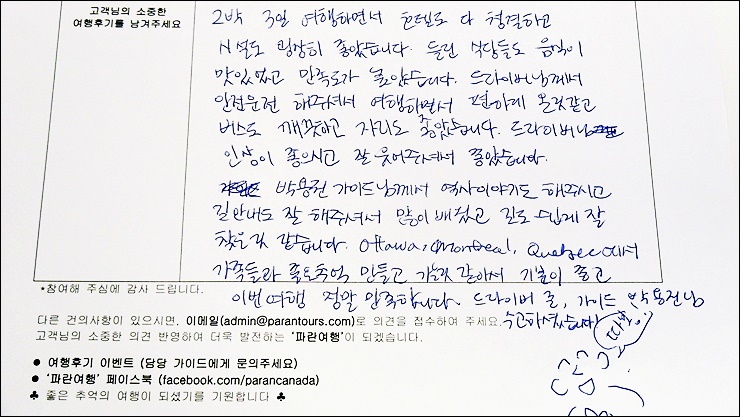 고객님의 소중한
여행후기를 남겨주세요
2박 3일 여행하면서 호텔도 다 청결하고
시설도 굉장히 좋았습니다. 들린 식당들도 음식이
맛있었고 만족도가 높았습니다. 드라이버님께서
안전운전 해주셔서 여행하면서 편하게 온것같고
버스도 깨끗하고 자리도 좋았습니다. 드라이버님
인상이 좋으시고 잘 웃어주셔서 좋았습니다.
박용전 가이드님께서 역사이야기도 해주시고
길안내도 잘 해주셔서 많이 배웠고 길도 쉽게 잘
찾은것 같습니다. Ottawa, Montreal, Quebec에서
가족들과 좋은추억 만들고 가는것 같아서 기분이 좋고
이번여행 정말 만족합니다. 드라이버 분, 가이드 박용전님
수고하셨습니다!
*참여해 주심에 감사 드립니다.
다른 건의사항이 있으시면, 이메일(admin@parantours.com)로 의견을 접수하여 주세요.
고객님의 소중한 의견 반영하여 더욱 발전하는 '파란여행'이 되겠습니다.
● 여행후기 이벤트 (담당 가이드에게 문의주세요)
● '파란여행' 페이스북 (facebook.com/parancanada)
♣ 좋은 추억의 여행이 되셨기를 기원합니다 ♣